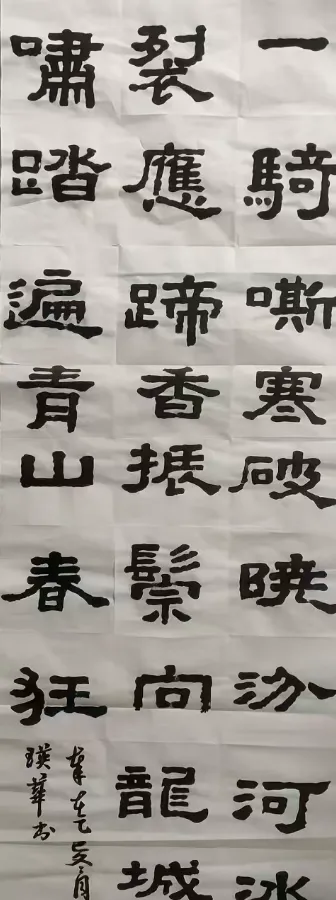 一騎嘶寒破曉汾河冰
裂應蹄香振鬃向龍城
嘯踏遍青山春狂
瑛華书